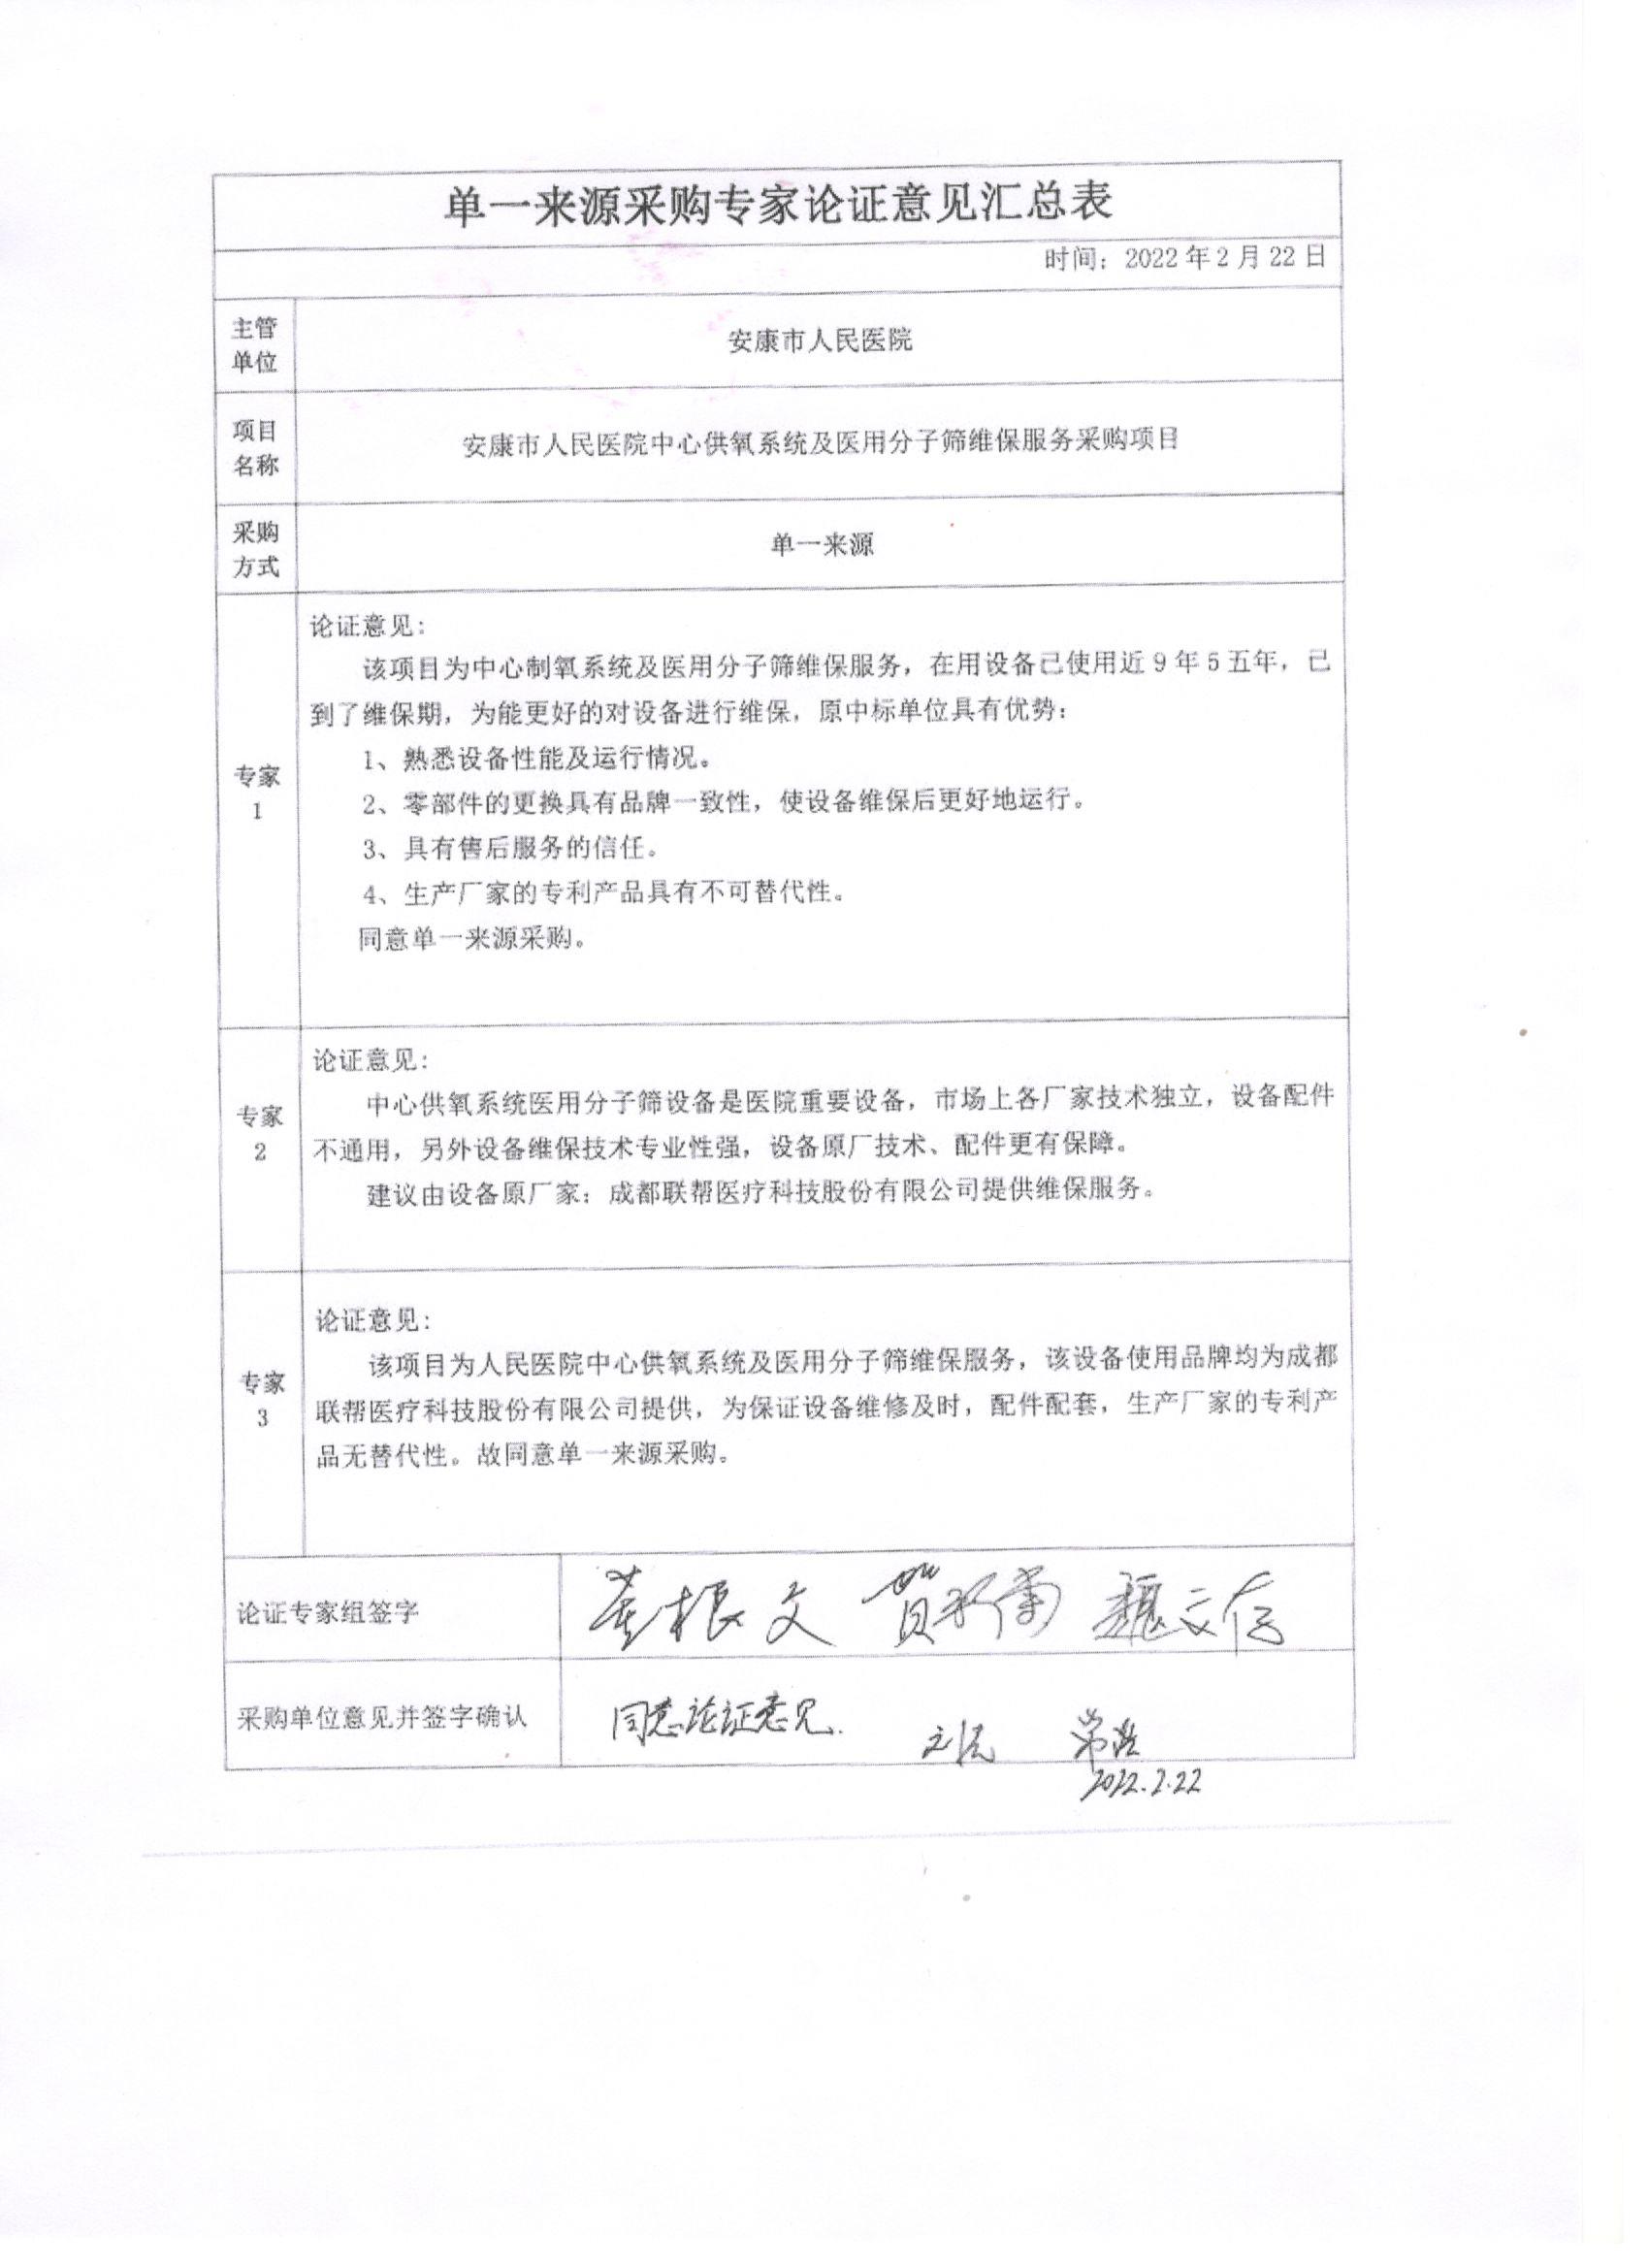 单一来源采购专家论证意见汇总表
时间：2022年2月22日
主管
单位
安康市人民医院
项目
名称
安康市人民医院中心供氧系统及医用分子筛维保服务采购项目
采购
方式
单一来源
专家
1
论证意见：
该项目为中心制氧系统及医用分子筛维保服务，在用设备已使用近9年5五年，已
到了维保期，为能更好的对设备进行维保，原中标单位具有优势：
1、熟悉设备性能及运行情况。
2、零部件的更换具有品牌一致性，使设备维保后更好地运行。
3、具有售后服务的信任。
4、生产厂家的专利产品具有不可替代性。
同意单一来源采购。
专家
2
论证意见：
中心供氧系统医用分子筛设备是医院重要设备，市场上各厂家技术独立，设备配件
不通用，另外设备维保技术专业性强，设备原厂技术、配件更有保障。
建议由设备原厂家：成都联帮医疗科技股份有限公司提供维保服务。
专家
3
论证意见：
该项目为人民医院中心供氧系统及医用分子筛维保服务，该设备使用品牌均为成都
联帮医疗科技股份有限公司提供，为保证设备维修及时，配件配套，生产厂家的专利产
品无替代性。故同意单一来源采购。
论证专家组签字
采购单位意见并签字确认
同意论证意见.
2022.2.22